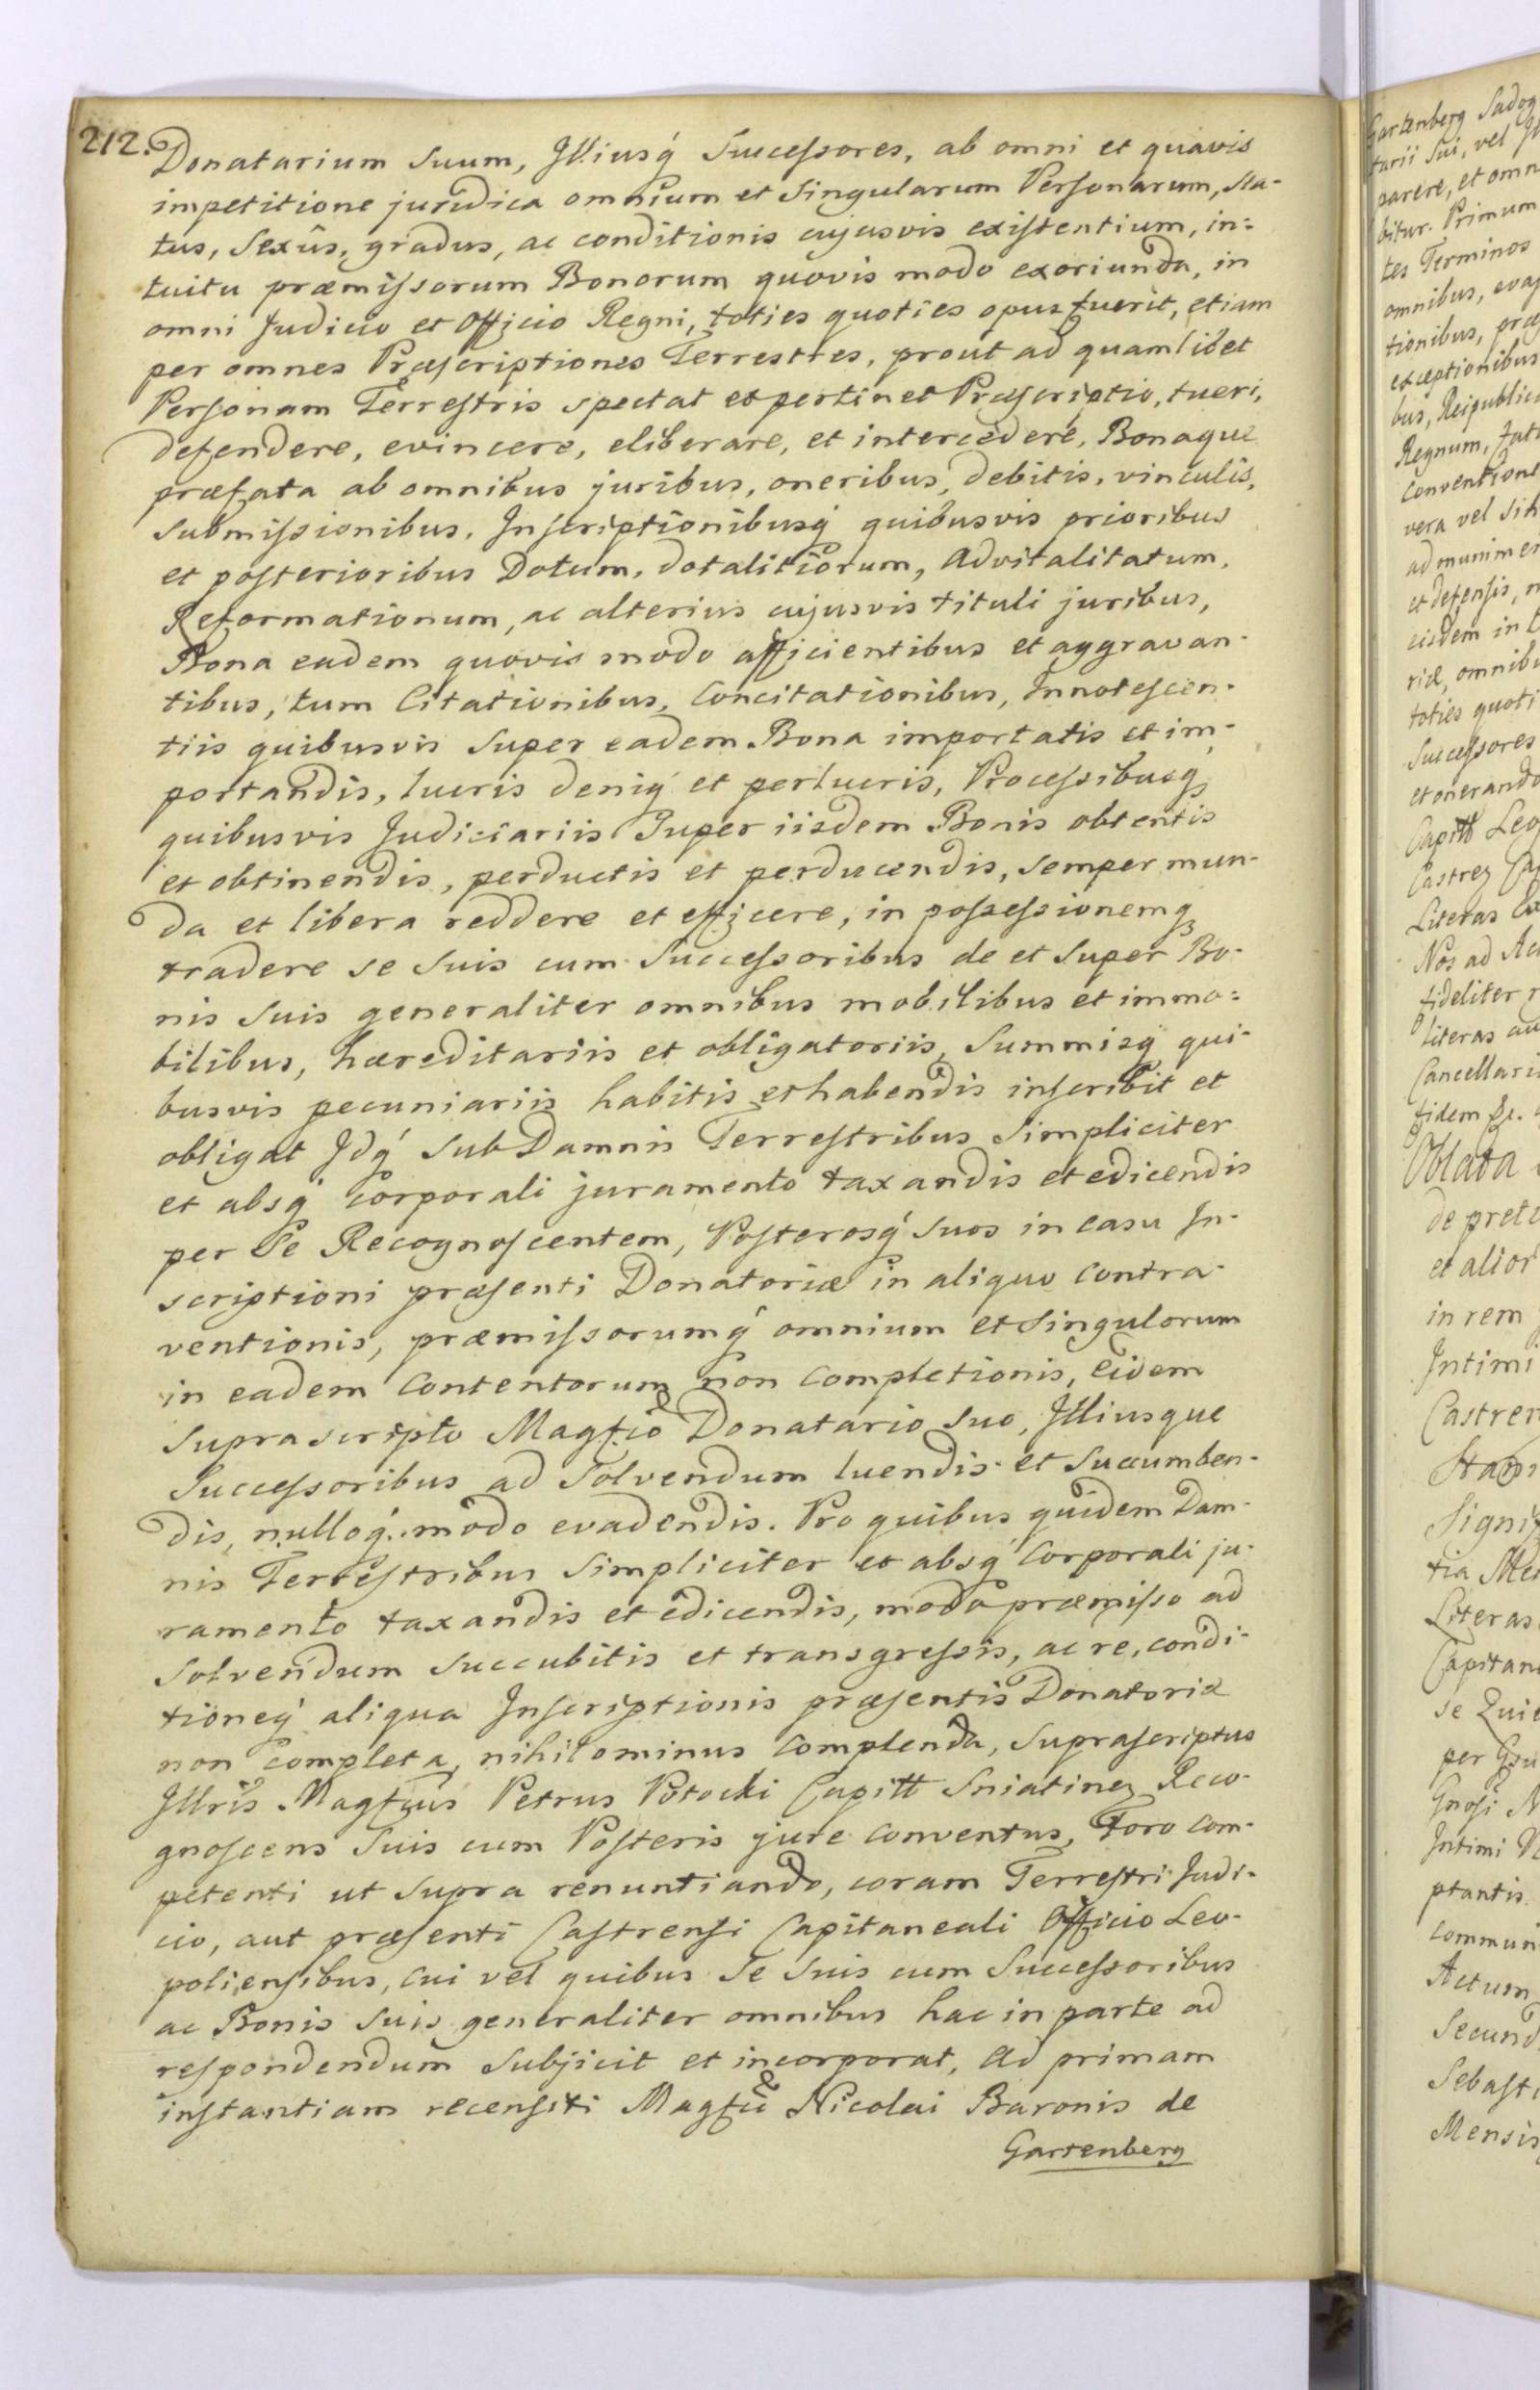 212. Donatarium Suum, Illiusq́ Successores, ab omni et quavis
impetitione juridica omnium et Singularum Personarum, sta-
tus, Sexûs, gradus, ac conditionis cujusvis existentium, in=
tuitu præmissorum Bonorum quovis modo exoriunda, in
omni Judicio et Officio Regni, toties quoties opus fuerit, etiam
per omnes Præscriptiones Terrestres, prout ad quamlibet
Personam Terrestris spectat et pertinet Præscriptio, tueri,
defendere, evincere, eliberare, et intercedere, Bonaque
præfata ab omnibus juribus, oneribus, debitis, vinculis,
submissionibus, Inscriptionibusq́ quibusvis prioribus
et posterioribus Dotum, dotalitiorum, Advitalitatum,
Reformationum, ac alterius cujusvis tituli juribus,
Bona eadem quovis modo afficientibus et aggravan-
tibus, tum Citationibus, Concitationibus, Innotescen-
tiis quibusvis Super eadem Bona importatis et im-
portandis, lucris deniq́ et perlucris, Processibusq́
quibusvis Judiciariis Super iisdem Bonis obtentis
et obtinendis, perductis et perducendis, semper mun-
da et libera reddere et efficere, in possessionemq́
tradere se suis cum Successoribus de et Super Bo-
nis Suis generaliter omnibus mobilibus et immo=
bilibus, hæreditariis et obligatoriis, Summisq́ qui-
busvis pecuniariis habitis et habendis inscribit et
obligat Idq́ Sub Damnis Terrestribus Simpliciter
et absq́ corporali juramento taxandis et edicendis
per Se Recognoscentem, Posterosq́ Suos in casu In-
scriptioni præsenti Donatoriæ in aliquo Contra-
ventionis, præmissorumq́ omnium et Singulorum
in eadem Contentorum non Completionis, Eidem
Suprascripto Magfco Donatario Suo, Illiusque
Successoribus ad Solvendum luendis et Succumben-
dis, nulloq́ modo evadendis. Pro quibus quidem Dam-
nis Terrestribus Simpliciter et absq́ Corporali ju-
ramento taxandis et edicendis, modo præmisso ad
Solvendum Succubitis et transgressis, ac re, condi-
tioneq́ aliqua Inscriptionis præsentis Donatoriæ
non completa, nihilominus Complenda, Suprascriptus
Illris Magfcus Petrus Potocki Capitt Sniatinez Reco-
gnoscens Suis cum Posteris jure Conventus, Foro Com-
petenti ut Supra renuntiando, coram Terrestri Judi-
cio, aut præsenti Castrensi Capitaneali Officio Leo-
poliensibus, cui vel quibus Se Suis cum Successoribus
ac Bonis Suis generaliter omnibus hac in parte ad
respondendum Subjicit et incorporat, Ad primam
instantiam recensiti Magfci Nicolai Baronis de
Gartenberg
Gartenberg Sadog
turii Sui, vel
parere, et omn
bitur. Primum
tes Terminos
omnibus, evas
tionibus, præ
exceptionibus
bus, Reipublic
Regnum,
Convention
vera vel
ad munimen
et defensis,
eisdem in
riæ, omnib
toties quoti
Successores
et onerando
Capitt Leo
Castrez Ca
Literas
Nos ad Ac
fideliter
literas au
Cancellari
fidem
Oblata
de preti
et alior
in rem
Intimi
Castren
Signif
tia
Literas
Capitan
se
per
Gnosi
Intimi
ptantis
Commun
Actum
Secund
Sebasti
Mensis